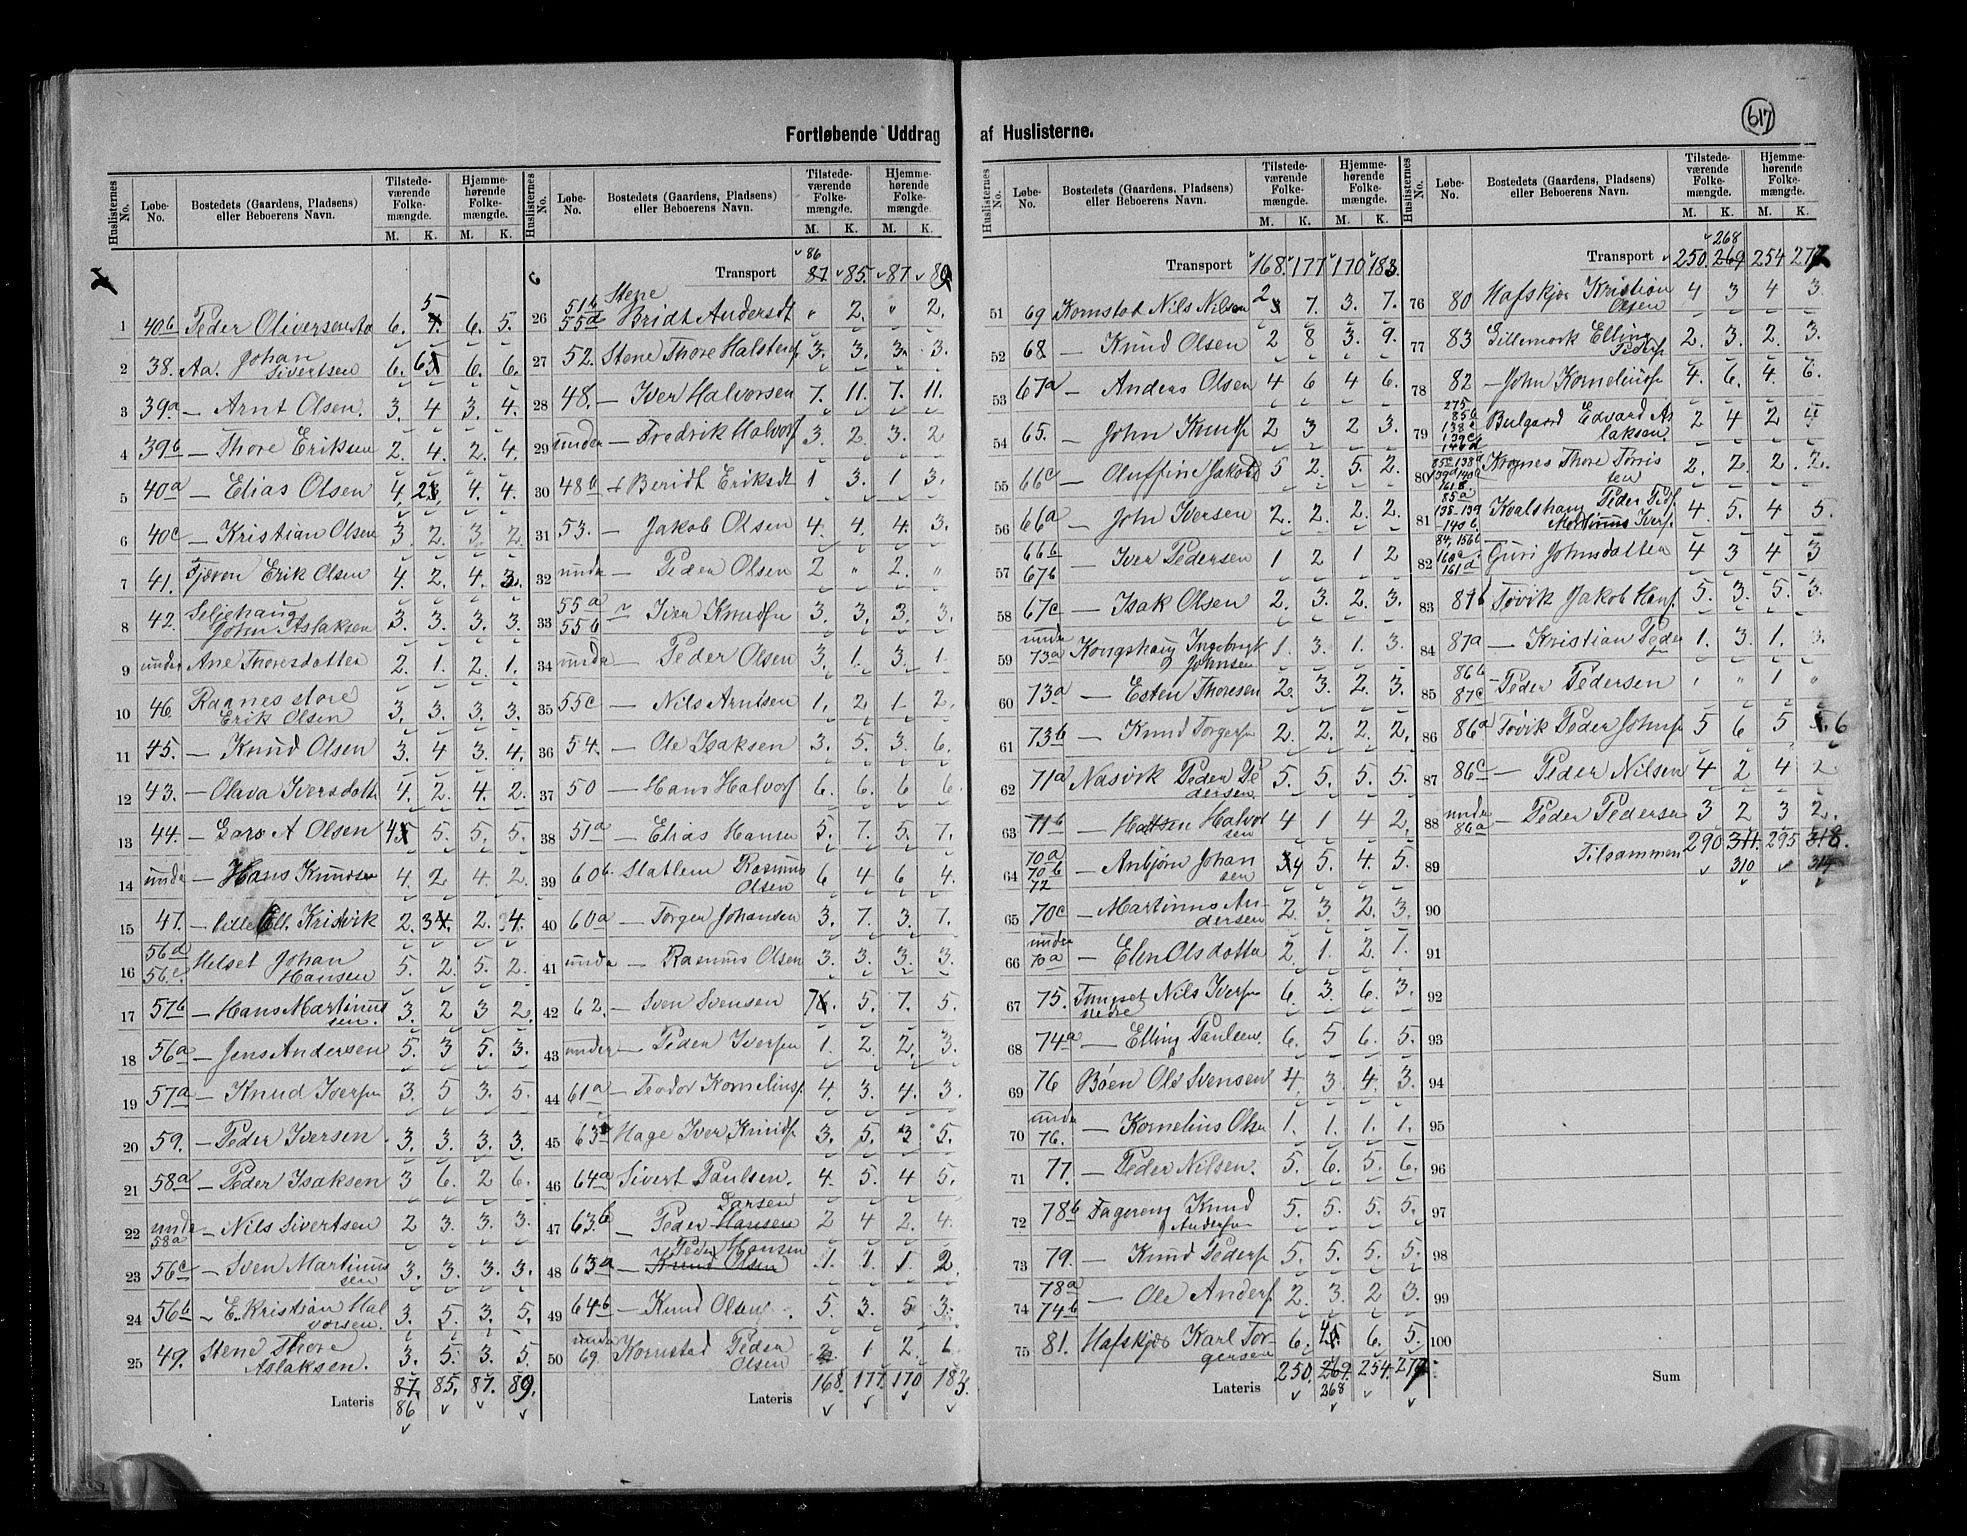 617
Fortløbende Uddrag af Huslisterne.
Huslisternes No. Løbe-No. Bostedets (Gaardens, Pladsens) eller Beboerens Navn. Tilstedeværende Folkemængde. M. K. Hjemmehørende Folkemængde. M. K.
1 40b Peder Oliversen Aa 6. 5 6. 5.
2 38. Aa. Johan Sivertsen 6. 6 6. 6.
3 39a — Arnt Olsen. 3. 4 3. 4.
4 39b — Thore Eriksen 2. 4. 2. 4.
5 40a — Elias Olsen 4. 2 4. 4.
6 40c — Kristian Olsen 3. 2. 3. 2.
7 41. Erik Olsen 4. 2. 4. 3.
8 42. Seljehaug John Aslaksen 3. 3. 3. 3.
9 under Ane Thoresdatter 2. 1. 2. 1.
10 46 Raanes store Erik Olsen 3. 3. 3. 3.
11 45. — Knud Olsen 3. 4 3. 4.
12 43. — Olava Iversdatt 4. 2. 4. 2.
13 44. — Lars A Olsen 4 5. 5. 5.
14 unde — Hans Knudsen 4. 2 4 2.
15 47. — lille Ell. Kristvik 2. 3 2. 4.
16 56d 56e Helset Johan Hansen 5. 2. 5. 2.
17 57b — Hans Martinussen. 3. 2 3 2.
18 56a — Jens Andersen 5. 3 5. 3.
19 57a — Knud Iversen 3. 5 3. 5.
20 59. — Peder Iversen 3. 3. 3. 3.
21 58a — Peder Isaksen 3 6. 2 6.
22 unde 58a — Nils Sivertsen 2 3. 3. 3.
23 56c — Sven Martinussen 3. 3. 3. 3.
24 56b — E. Kristian Halvorsen. 3. 5. 3. 5.
25 49. Stene Thore Aslaksen. 3. 5. 3. 5.
Lateris 87. 85. 87. 89.
86
Huslisternes No. Løbe-No. Bostedets (Gaardens, Pladsens) eller Beboerens Navn. Tilstedeværende Folkemængde. M. K. Hjemmehørende Folkemængde. M. K.
86
Transport 87. 85. 87. 89
26 51b 55d Stene Bridt Andersdt " 2. " 2.
27 52. Stene Thore Halstensf 3. 3. 3. 3.
28 48. — Iver Halvorsen 7. 11. 7. 11.
29 unde — Fredrik Halvorf 3. 2. 3. 2
30 48b Beridt Eriksdt 1 3. 1 3.
31 53. — Jakob Olsen 4. 4. 4. 3.
32 unde — Peder Olsen 2 " 2. "
33 55a 55b — Iver Knudsen 3. 3. 3. 3.
34 unde — Peder Olsen 3. 1. 3. 1.
35 55c — Nils Arntsen 1. 2 1 2.
36 54. — Ole Isaksen 3. 5. 3 6.
37 50 — Hans Halvorf 6. 6. 6 6.
38 51a — Elias Hansen 5. 7. 5. 7.
39 60b Slatlem Rasmus Olsen 6 4 6 4.
40 60a — Torger Johansen 3. 7. 3. 7.
41 unde — Rasmus Olsen 3. 3. 3. 3.
42 62. — Sven Svensen 7 5. 7. 5.
43 under — Peder Iversen 1. 2. 2. 3.
44 61a — Teodor Korneliusf 4. 3. 4. 3.
45 63c Hage Iver Knudf 3. 5. 3 5.
46 64a Sivert Paulsen. 4. 5. 4 5.
47 63b — Peder Hansen Larsen 2 4 2. 4.
48 63a — Knud Olsen Peder Hansen 1. 1. 1. 2.
49 64b — Knud Olsen 5. 3. 5 3.
50 under 69. Kornstad Peder Olsen 2. 1 2. 1
Lateris 168. 177. 170 183.
Huslisternes No. Løbe-No. Bostedets (Gaardens, Pladsens) eller Beboerens Navn. Tilstedeværende Folkemængde. M. K. Hjemmehørende Folkemængde. M. K.
Transport 168. 177 170 183.
51 69 Kornstad Nils Nilsen 2 7. 3. 7.
52 68. — Knud Olsen 2 8 3. 9.
53 67a — Anders Olsen 4 6 4 6.
54 65. — John Knutsf 2 3 2 3.
55 66c — Oluffine Jakobd 5 2. 5. 2.
56 66a — John Iversen 2. 2. 2. 2.
57 66b 67b — Iver Pedersen 1 2 1 2
58 67c — Isak Olsen 2. 3. 2. 3.
59 unde 73a Kongshaug Ingebrigt Johnsen 1. 3. 1 3.
60 73a — Esten Thoresen 2. 3. 2. 3.
61 73b — Knud Torgersen 2. 2. 2. 2.
62 71a Nasvik Peder Pedersen 5. 5. 5. 5.
63 71b — Halvorsen 4 1 4 2.
64 70a 70b 72 — Anbjørn Johansen 4 5. 4. 5.
65 70c — Martinus Andersen 2. 3. 2. 3.
66 under 70a — Elen Olsdatter 2. 1. 2. 1.
67 75. Tungset nedre Nils Iversen 6. 3. 6. 3.
68 74a — Elling Paulsen. 6. 5 6. 5.
69 76 Bøen Ole Svensen 4. 3. 4. 3.
70 unde 76. — Kornelius Olsen 1. 1. 1. 1.
71 77. — Peder Nilsen. 5. 6. 5. 6.
72 78b Fagereng Knud Andersen 5. 5. 5. 5.
73 79. — Knud Pedersf 5. 5. 5. 5.
74 78a 74b — Ole Andersf 2. 3. 2 3.
75 81. Hafskjær Karl Torgersen 6. 4 6. 5.
Lateris 250. 269. 254. 277.
268
Huslisternes No. Løbe-No. Bostedets (Gaardens, Pladsens) eller Beboerens Navn. Tilstedeværende Folkemængde. M. K. Hjemmehørende Folkemængde. M. K.
268
Transport 250. 269 254 277
76 80 Hafskjær Kristian Olsen 4 3 4 3.
77 83 Gillemork Elling Pedersf 2. 3. 2. 3.
78 82 — John Korneliusf 4. 6. 4. 6.
79 275 85b 138c 139c 140d Bulgaard Edvard Aslaksen 2 4 2 4
80 85c 138d 139d 140c 161e Krognes Thore Torrissen 2. 2. 2. 2.
81 85a 138-139 -140b Kvalshaug Peder Pedf. Martinus Iversf. 4. 5. 4 5.
82 84, 156b 160c 161d Guri Johnsdatter 4 3 4 3
83 87b Tøvik Jakob Hansf 5. 3. 5. 3.
84 87a — Kristian Peder 1. 3. 1. 3.
85 86b 87c — Peder Pedersen " " 1 "
86 86a Tøvik Peder Johnsf 5 6 5 6
87 86c — Peder Nilsen 4 2 4 2
88 under 86a — Peder Pedersen 3 2 3 2.
89 Tilsammen 290 311. 295 318.
310 317
90
91
92
93
94
95
96
97
98
99
100
Sum